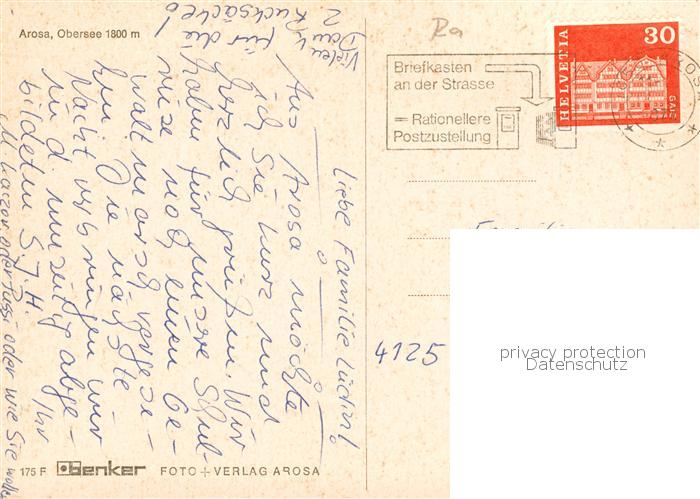 Arosa, Obersee 1800 m
Vielen
Dank
für die
2
Rucksäcke!
Liebe Familie Lüdin!
Aus Arosa möchte
ich Sie kurz und
herzlich grüssen. Wir
haben für unsere Schul-
reise noch einen Ge-
waltmarsch vorgese-
hen. Die nächste
Nacht verbringen wir
in d.
bildeten S.J.H.
Ihr
M. oder Pussi oder wie Sie wollen
Ra
Briefkasten
an der Strasse
= Rationellere
Postzustellung
HELVETIA
30
GAIS
4125
privacy protection
Datenschutz
175 F
benker
FOTO + VERLAG AROSA